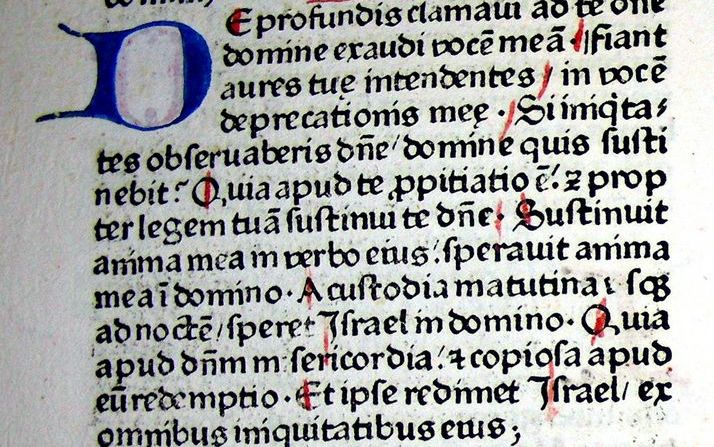 DE profundis clamaui ad te dñe
domine exaudi vocē meā. Fiant
aures tuę intendentes/ in vocē
deprecationis meę. Si iniq̇ta⸗
tes obseruaberis dñe/ domine quis susti
nebit? Quia apud te ꝓpitiatio ē: ⁊ prop
ter legem tuā sustinui te dñe. Sustinuit
anima mea in verbo eius: sperauit anima
mea ī domino. A custodia matutina
ad noctē/ speret Israel in domino. Quia
apud dñm misericordia: ⁊ copiosa apud
eū redemptio. Et ipse redimet Israel/ ex
omnibus iniquitatibus eius;